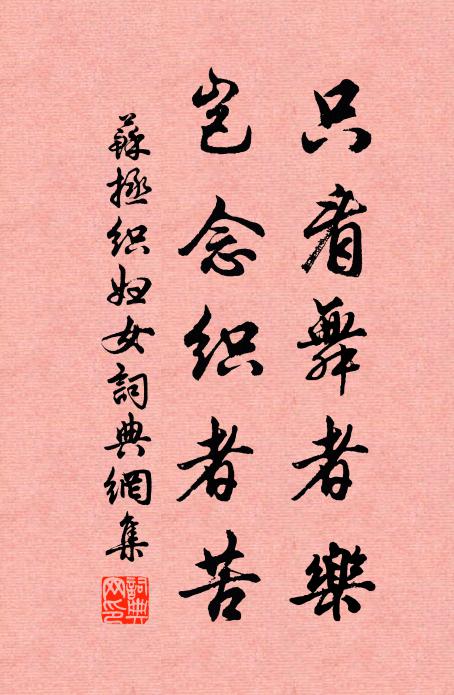 只看舞者樂
豈念織者苦
蘇拯織婦女詞典網集
詞典網印